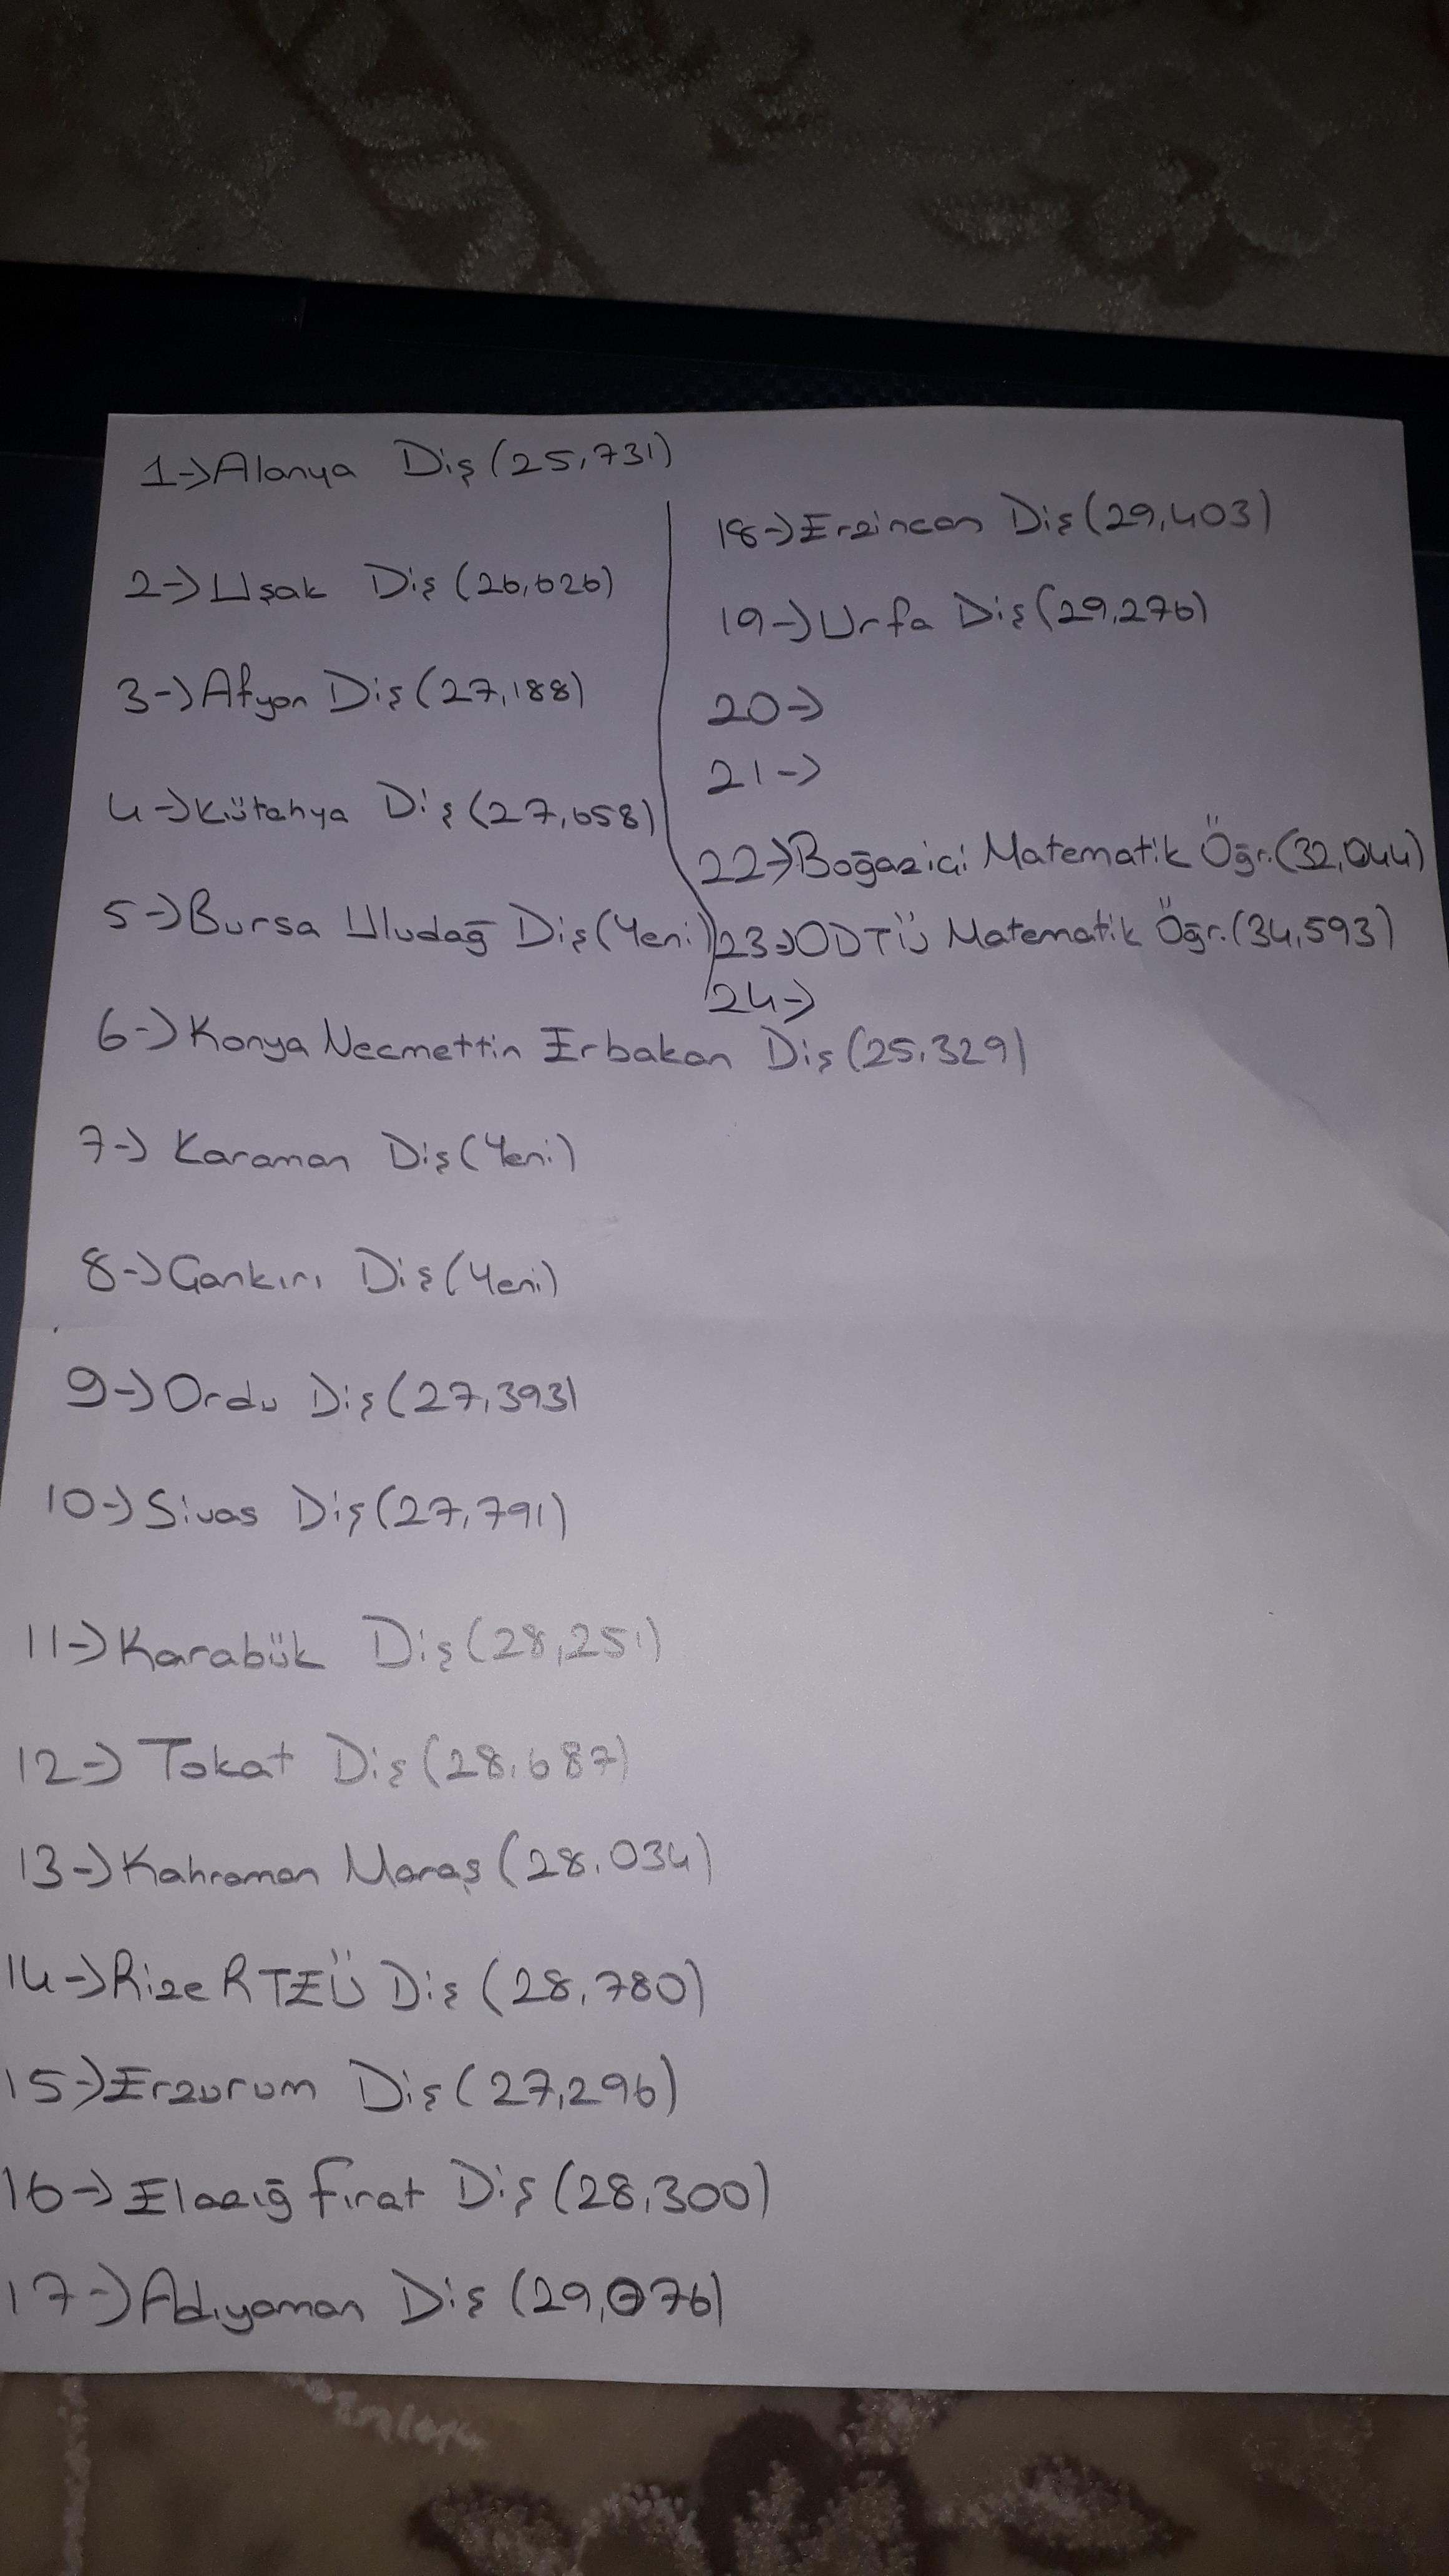 1->Alanya Diş (25,731)
2->Uşak Diş (26,626)
3->Afyon Diş (27,188)
4->Kütahya Diş (27,658)
5->Bursa Uludağ Diş (Yeni)
6->Konya Necmettin Erbakan Diş (25.329)
7-> Karaman Diş (Yeni)
8->Çankırı Diş (Yeni)
9->Ordu Diş (27,393)
10->Sivas Diş (27,791)
11->Karabük Diş (28,251)
12-> Tokat Diş (28.687)
13->Kahraman Maraş (28.034)
14->Rize RTEÜ Diş (28,780)
15->Erzurum Diş (27,296)
16->Elazığ Fırat Diş (28,300)
17->Adıyaman Diş (29,076)
18->Erzincan Diş (29,403)
19->Urfa Diş (29,276)
20->
21->
22->Boğaziçi Matematik Öğr. (32,044)
23->ODTÜ Matematik Öğr. (34,593)
24->